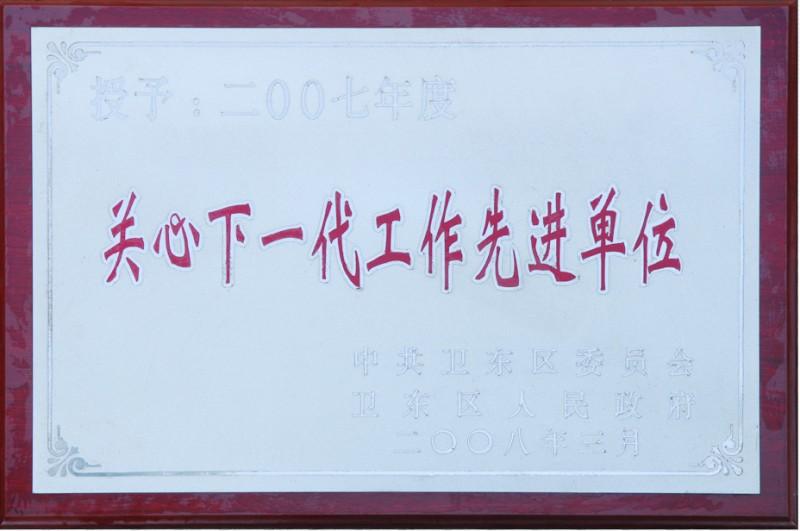 授予：二00七年度
关心下一代工作先进单位
中共卫东区委员会
卫东区人民政府
二〇〇八年三月